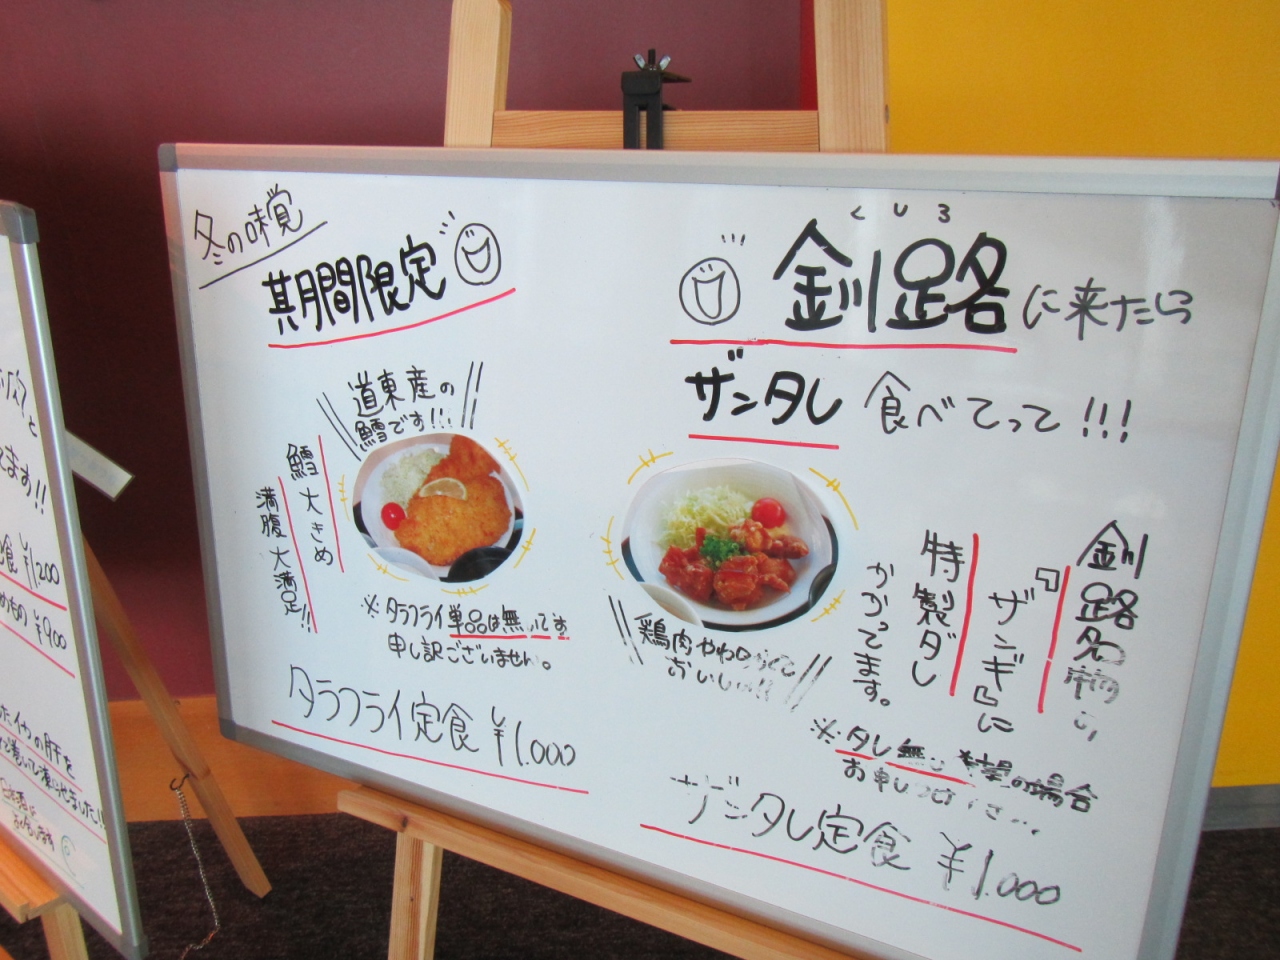 冬の味覚
期間限定
道東産の
鱈です!!!
鱈大きめ
満腹大満足!!
※タラフライ単品は無いです
申し訳ございません。
タラフライ定食 ¥1.000
くしろ
釧路に来たら
ザンタレ 食べてって!!!
釧路名物の
『ザンギ』に
特製ダレ
かかってます。
鶏肉やわらかく
おいしい!!
※タレ無し希望の場合
お申しつけ下さい...
ザンタレ定食 ¥1.000
てます!!
食 ¥1.200
¥900
イカの肝を